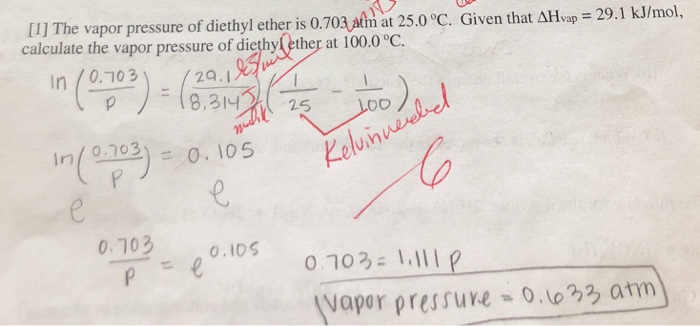 [1] The vapor pressure of diethyl ether is 0.703 atm at 25.0 °C. Given that ΔHvap = 29.1 kJ/mol,
calculate the vapor pressure of diethyl ether at 100.0 °C.
units
ln (0.703/P) = (29.1 kJ/mol / 8.314 J/mol·K) (1/25 - 1/100)
Kelvin needed
ln (0.703/P) = 0.105
e e
6
0.703/P = e^0.105
0.703 = 1.111 P
Vapor pressure = 0.633 atm